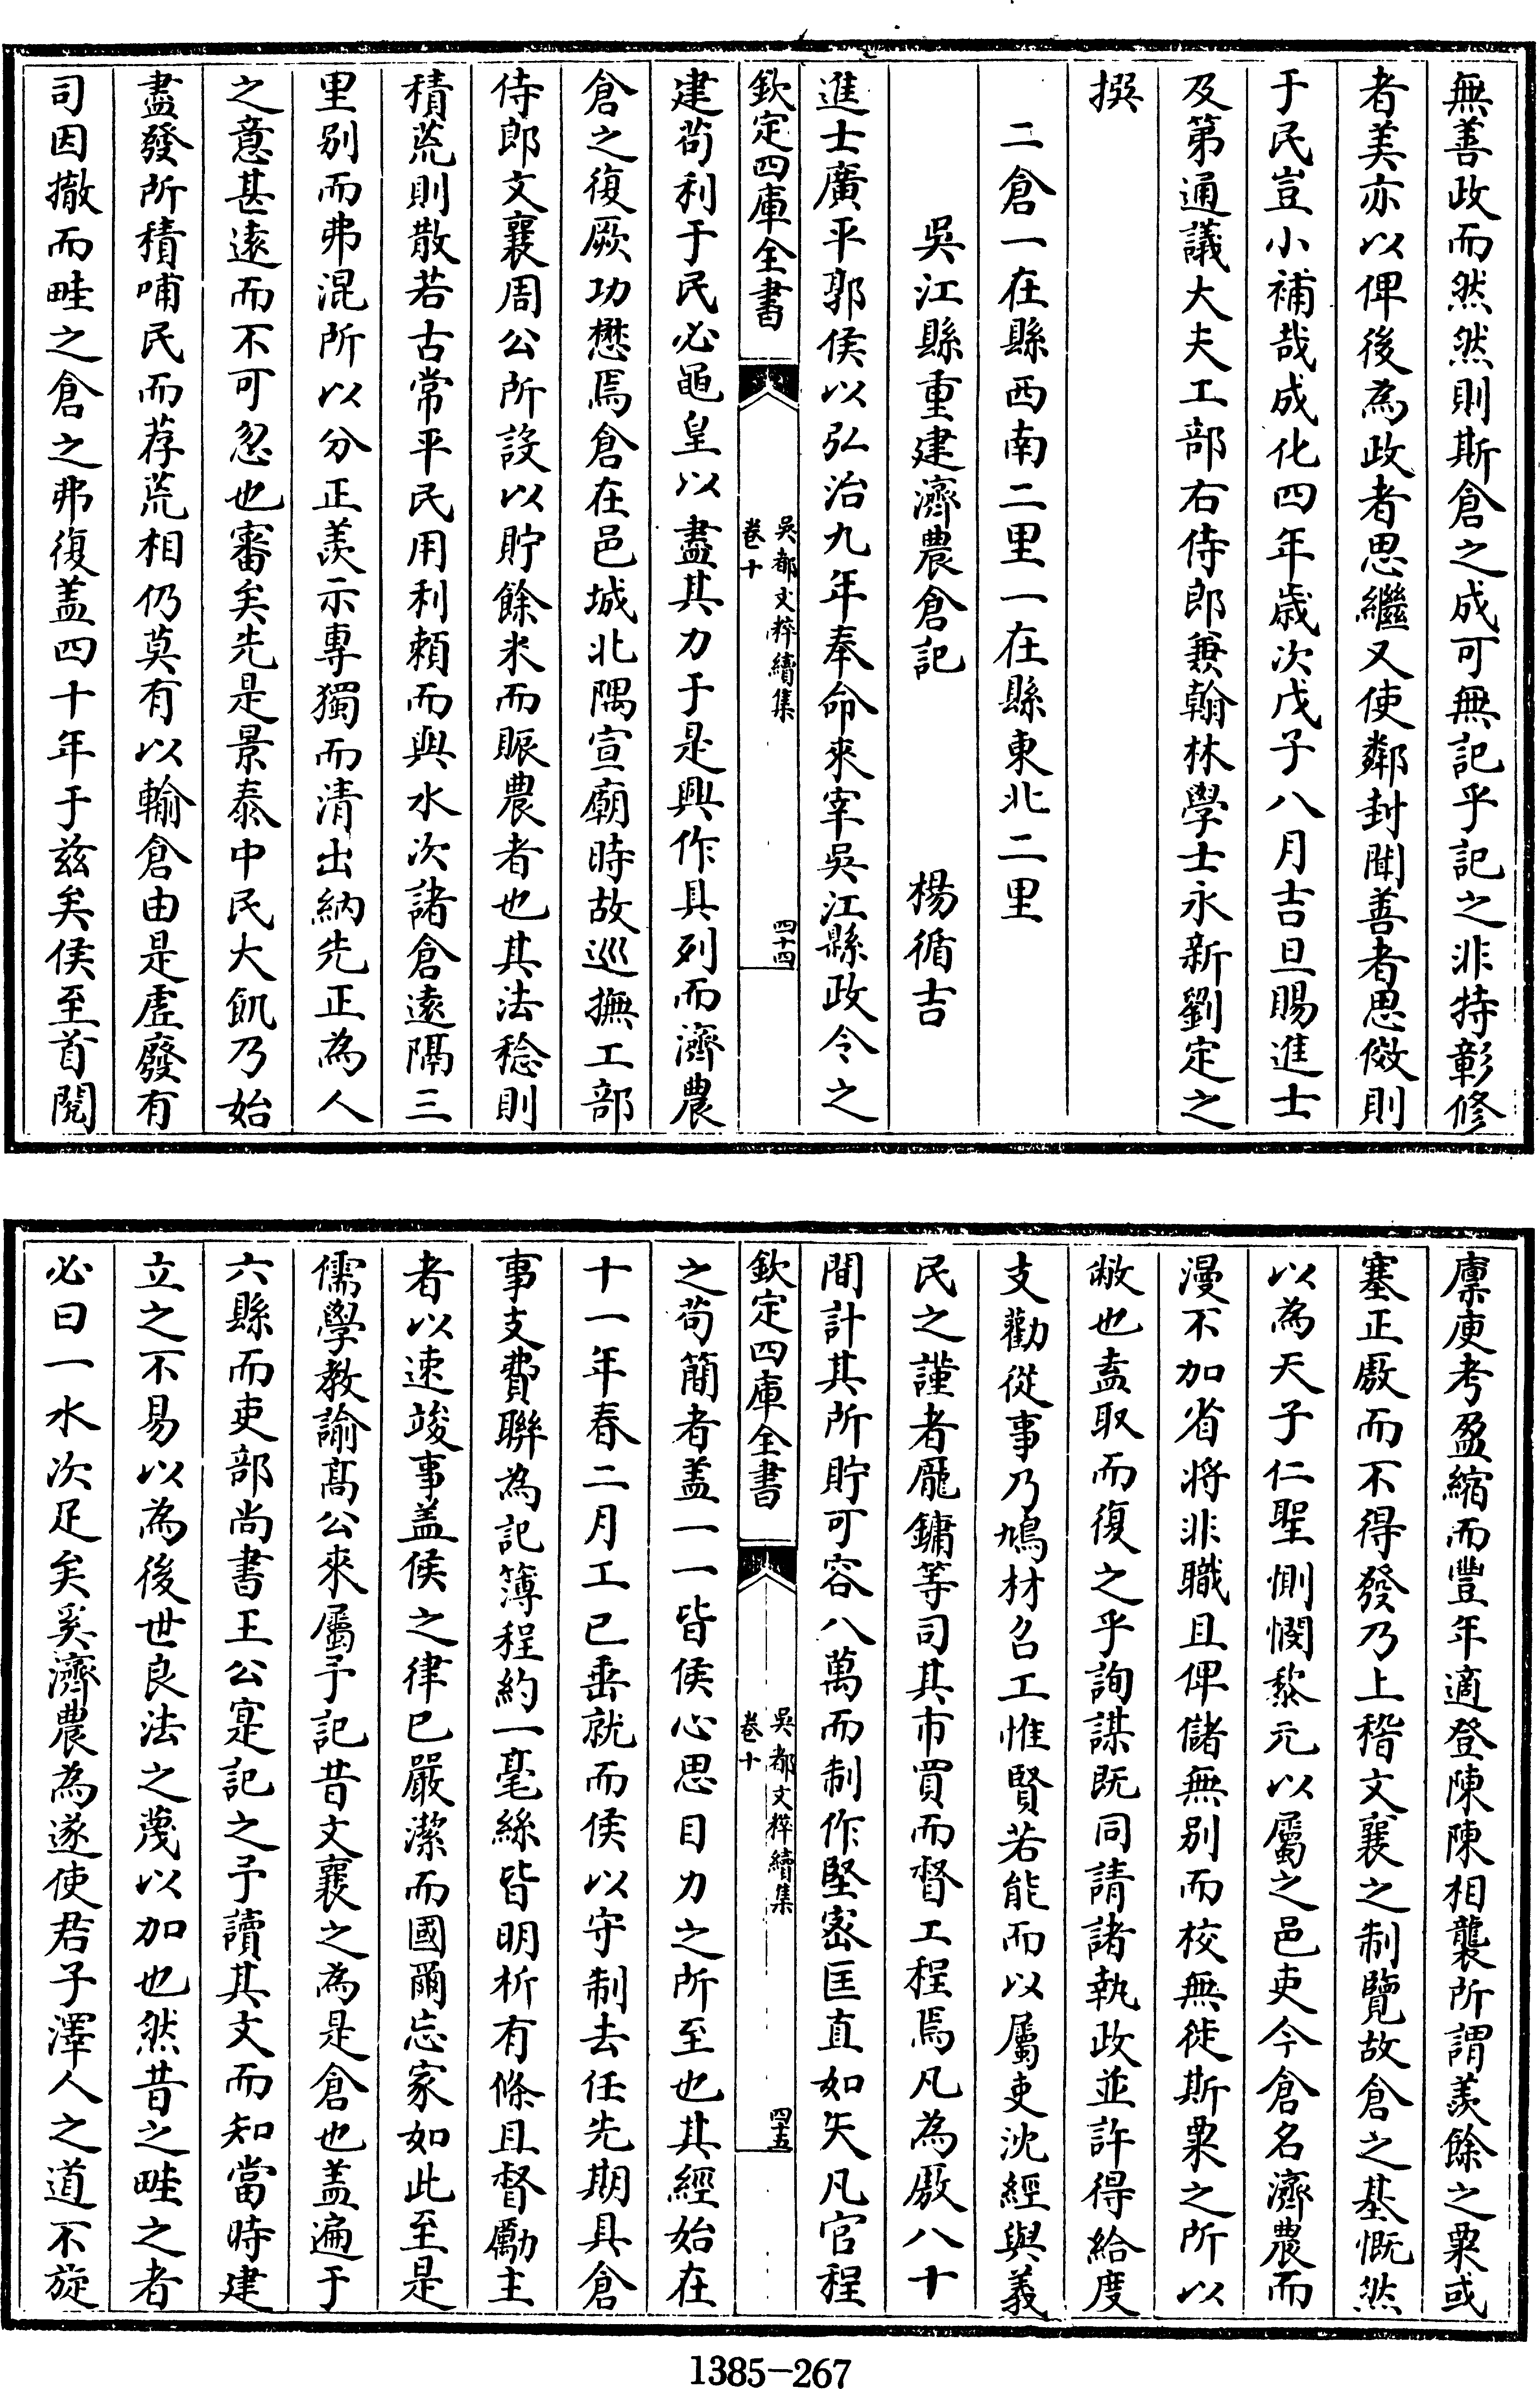 無善政而然然則斯倉之成可無記乎記之非特彰修
者美亦以俾後為政者思繼又使鄰封聞善者思傚則
于民豈小補哉成化四年歳次戊子八月吉旦賜進士
及第通議大夫工部右侍郎兼翰林學士永新劉定之
撰
二倉一在縣西南二里一在縣東北二里
吳江縣重建濟農倉記　楊循吉
進士廣平郭侯以弘治九年奉命來宰吳江縣政令之
欽定四庫全書
吳都文粹續集
卷十
四十四
建茍利于民必黽皇以盡其力于是興作具列而濟農
倉之復厥功懋焉倉在邑城北隅宣廟時故巡撫工部
侍郎文襄周公所設以貯餘米而賑農者也其法稔則
積荒則散若古常平民用利頼而與水次諸倉遠隔三
里别而弗混所以分正羨示專獨而清出納先正為人
之意甚遠而不可忽也審矣先是景泰中民大飢乃始
盡發所積哺民而荐荒相仍莫有以輸倉由是虚廢有
司因撤而畦之倉之弗復盖四十年于兹矣侯至首閱
廪庾考盈縮而豐年適登陳陳相襲所謂羨餘之粟或
塞正廒而不得發乃上稽文襄之制覽故倉之基慨然
以為天子仁聖惻憫黎元以屬之邑吏今倉名濟農而
漫不加省將非職且俾儲無别而校無徙斯粟之所以
敝也盍取而復之乎詢謀既同請諸執政並許得給度
支勸從事乃鳩材召工惟賢若能而以屬吏沈經與義
民之謹者龎鏞等司其市買而督工程焉凡為廒八十
間計其所貯可容八萬而制作堅宻匡直如矢凡官程
欽定四庫全書
吳都文粹續集
卷十
四十五
之茍簡者盖一一皆侯心思目力之所至也其經始在
十一年春二月工已垂就而侯以守制去任先期具倉
事支費聯為記簿程約一毫絲皆明析有條且督勵主
者以速竣事盖侯之律已嚴潔而國爾忘家如此至是
儒學教諭髙公來屬予記昔文襄之為是倉也盖遍于
六縣而吏部尚書王公寔記之予讀其文而知當時建
立之不易以為後世良法之蔑以加也然昔之畦之者
必曰一水次足矣奚濟農為遂使君子澤人之道不旋
1385-267